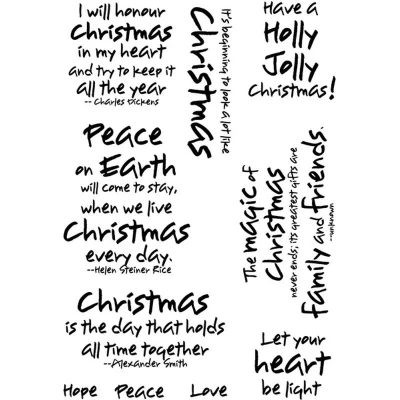 I will honour
Christmas
in my heart
and try to keep it
all the year
-- Charles Dickens
It's beginning to look a lot like
Christmas
Have a
Holly
Jolly
Christmas!
Peace
on Earth
will come to stay,
when we live
Christmas
every day.
--Helen Steiner Rice
The magic of
Christmas
never ends; its greatest gifts are
family and friends.
--unknown
Christmas
is the day that holds
all time together
--Alexander Smith
Let your
heart
be light
Hope Peace Love